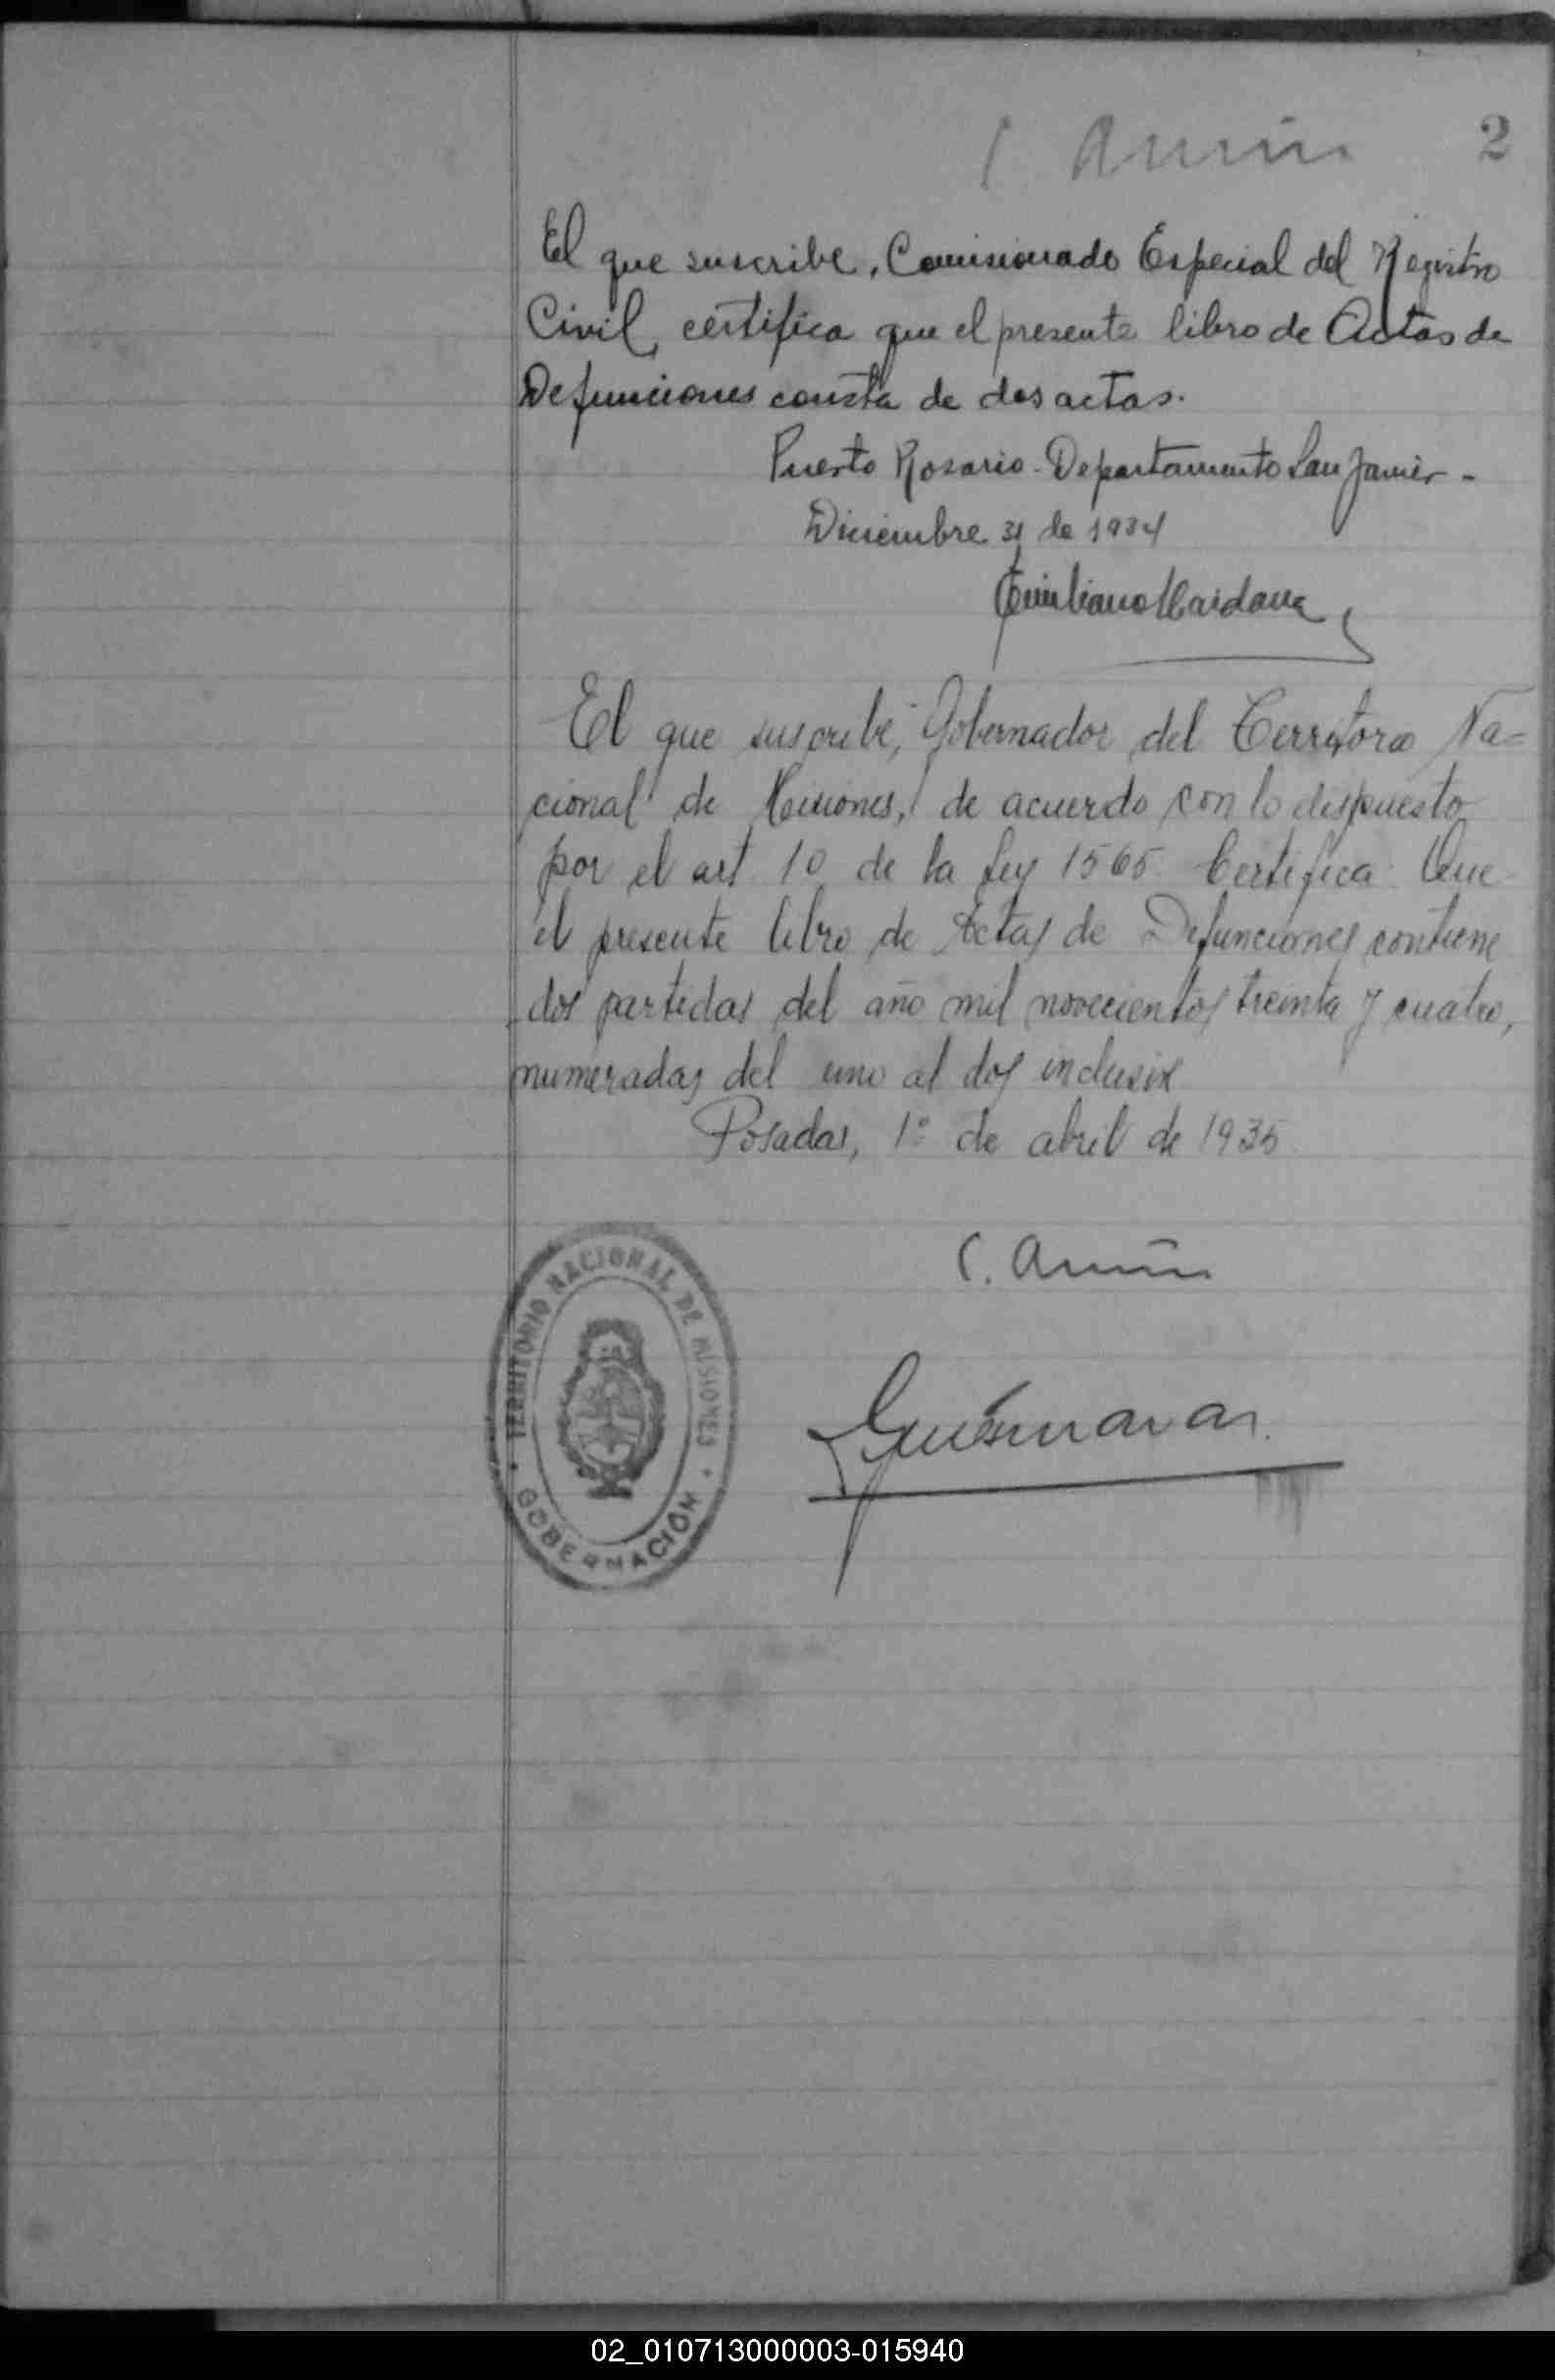 2
El que suscribe, Comisionado Especial del Registro
Civil, certifica que el presente libro de Actas de
Defunciones consta de dos actas.
Puerto Rosario - Departamento San Javier -
Diciembre 31 de 1934
El que suscribe, Gobernador del Territorio Na=
cional de Misiones, de acuerdo con lo dispuesto
por el art. 10 de la Ley 1565 Certifica: Que
el presente libro de Actas de Defunciones contiene
dos partidas del año mil novecientos treinta y cuatro,
numeradas del uno al dos inclusive
Posadas, 1º de abril de 1935
TERRITORIO NACIONAL DE MISIONES
GOBERNACIÓN
02_010713000003-015940